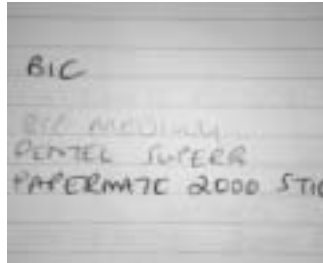 BIC
BIC MEDIUM
PENTEL SUPERB
PAPERMATE 2000 STIC